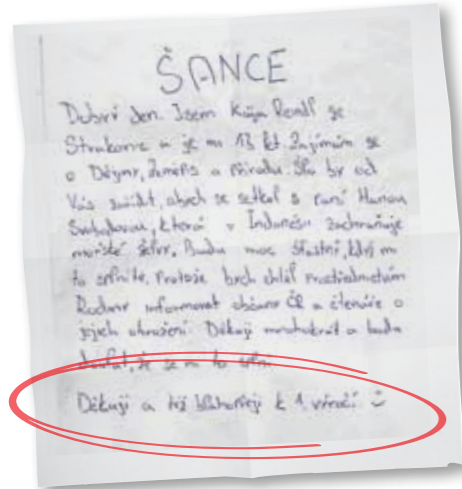 ŠANCE
Dobrý den. Jsem Kája Rendl ze
Strakonic a je mi 13 let. Zajímám se
o Dějiny, Zeměpis a Přírodu. Šlo by od
Vás zařídit, abych se setkal s paní Hanou
Svobodovou, která v Indonésii zachraňuje
mořské želvy. Budu moc šťastný, když mi
to splníte, protože bych chtěl prostřednictvím
Rodiny informovat občany ČR a čtenáře o
jejich ohrožení. Děkuji mnohokrát a budu
doufat, že se mi to splní.
Děkuji a též blahopřeji k 1. výročí